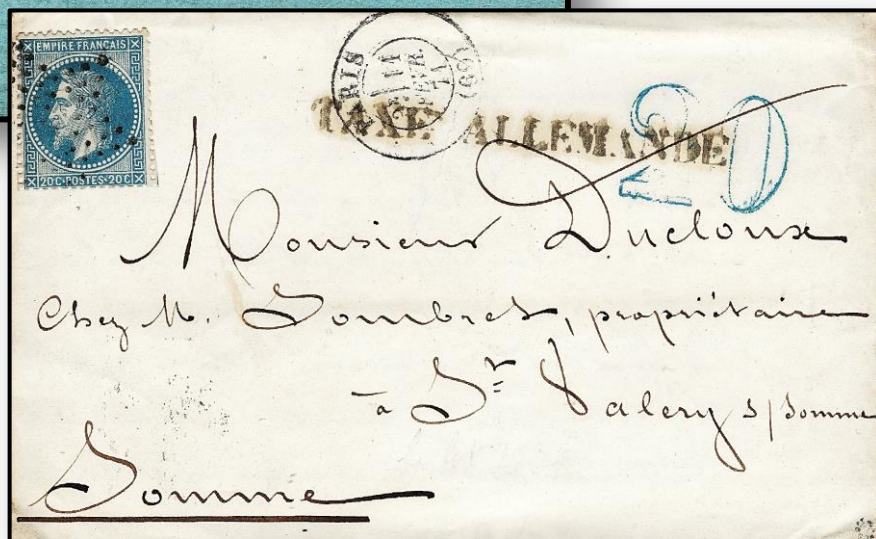 EMPIRE FRANCAIS
20C·POSTES·20C
PARIS
(60)
TAXE ALLEMANDE
20
Monsieur Ducloux
Chez M. Sombret, propriétaire
à St Valery s/Somme
Somme